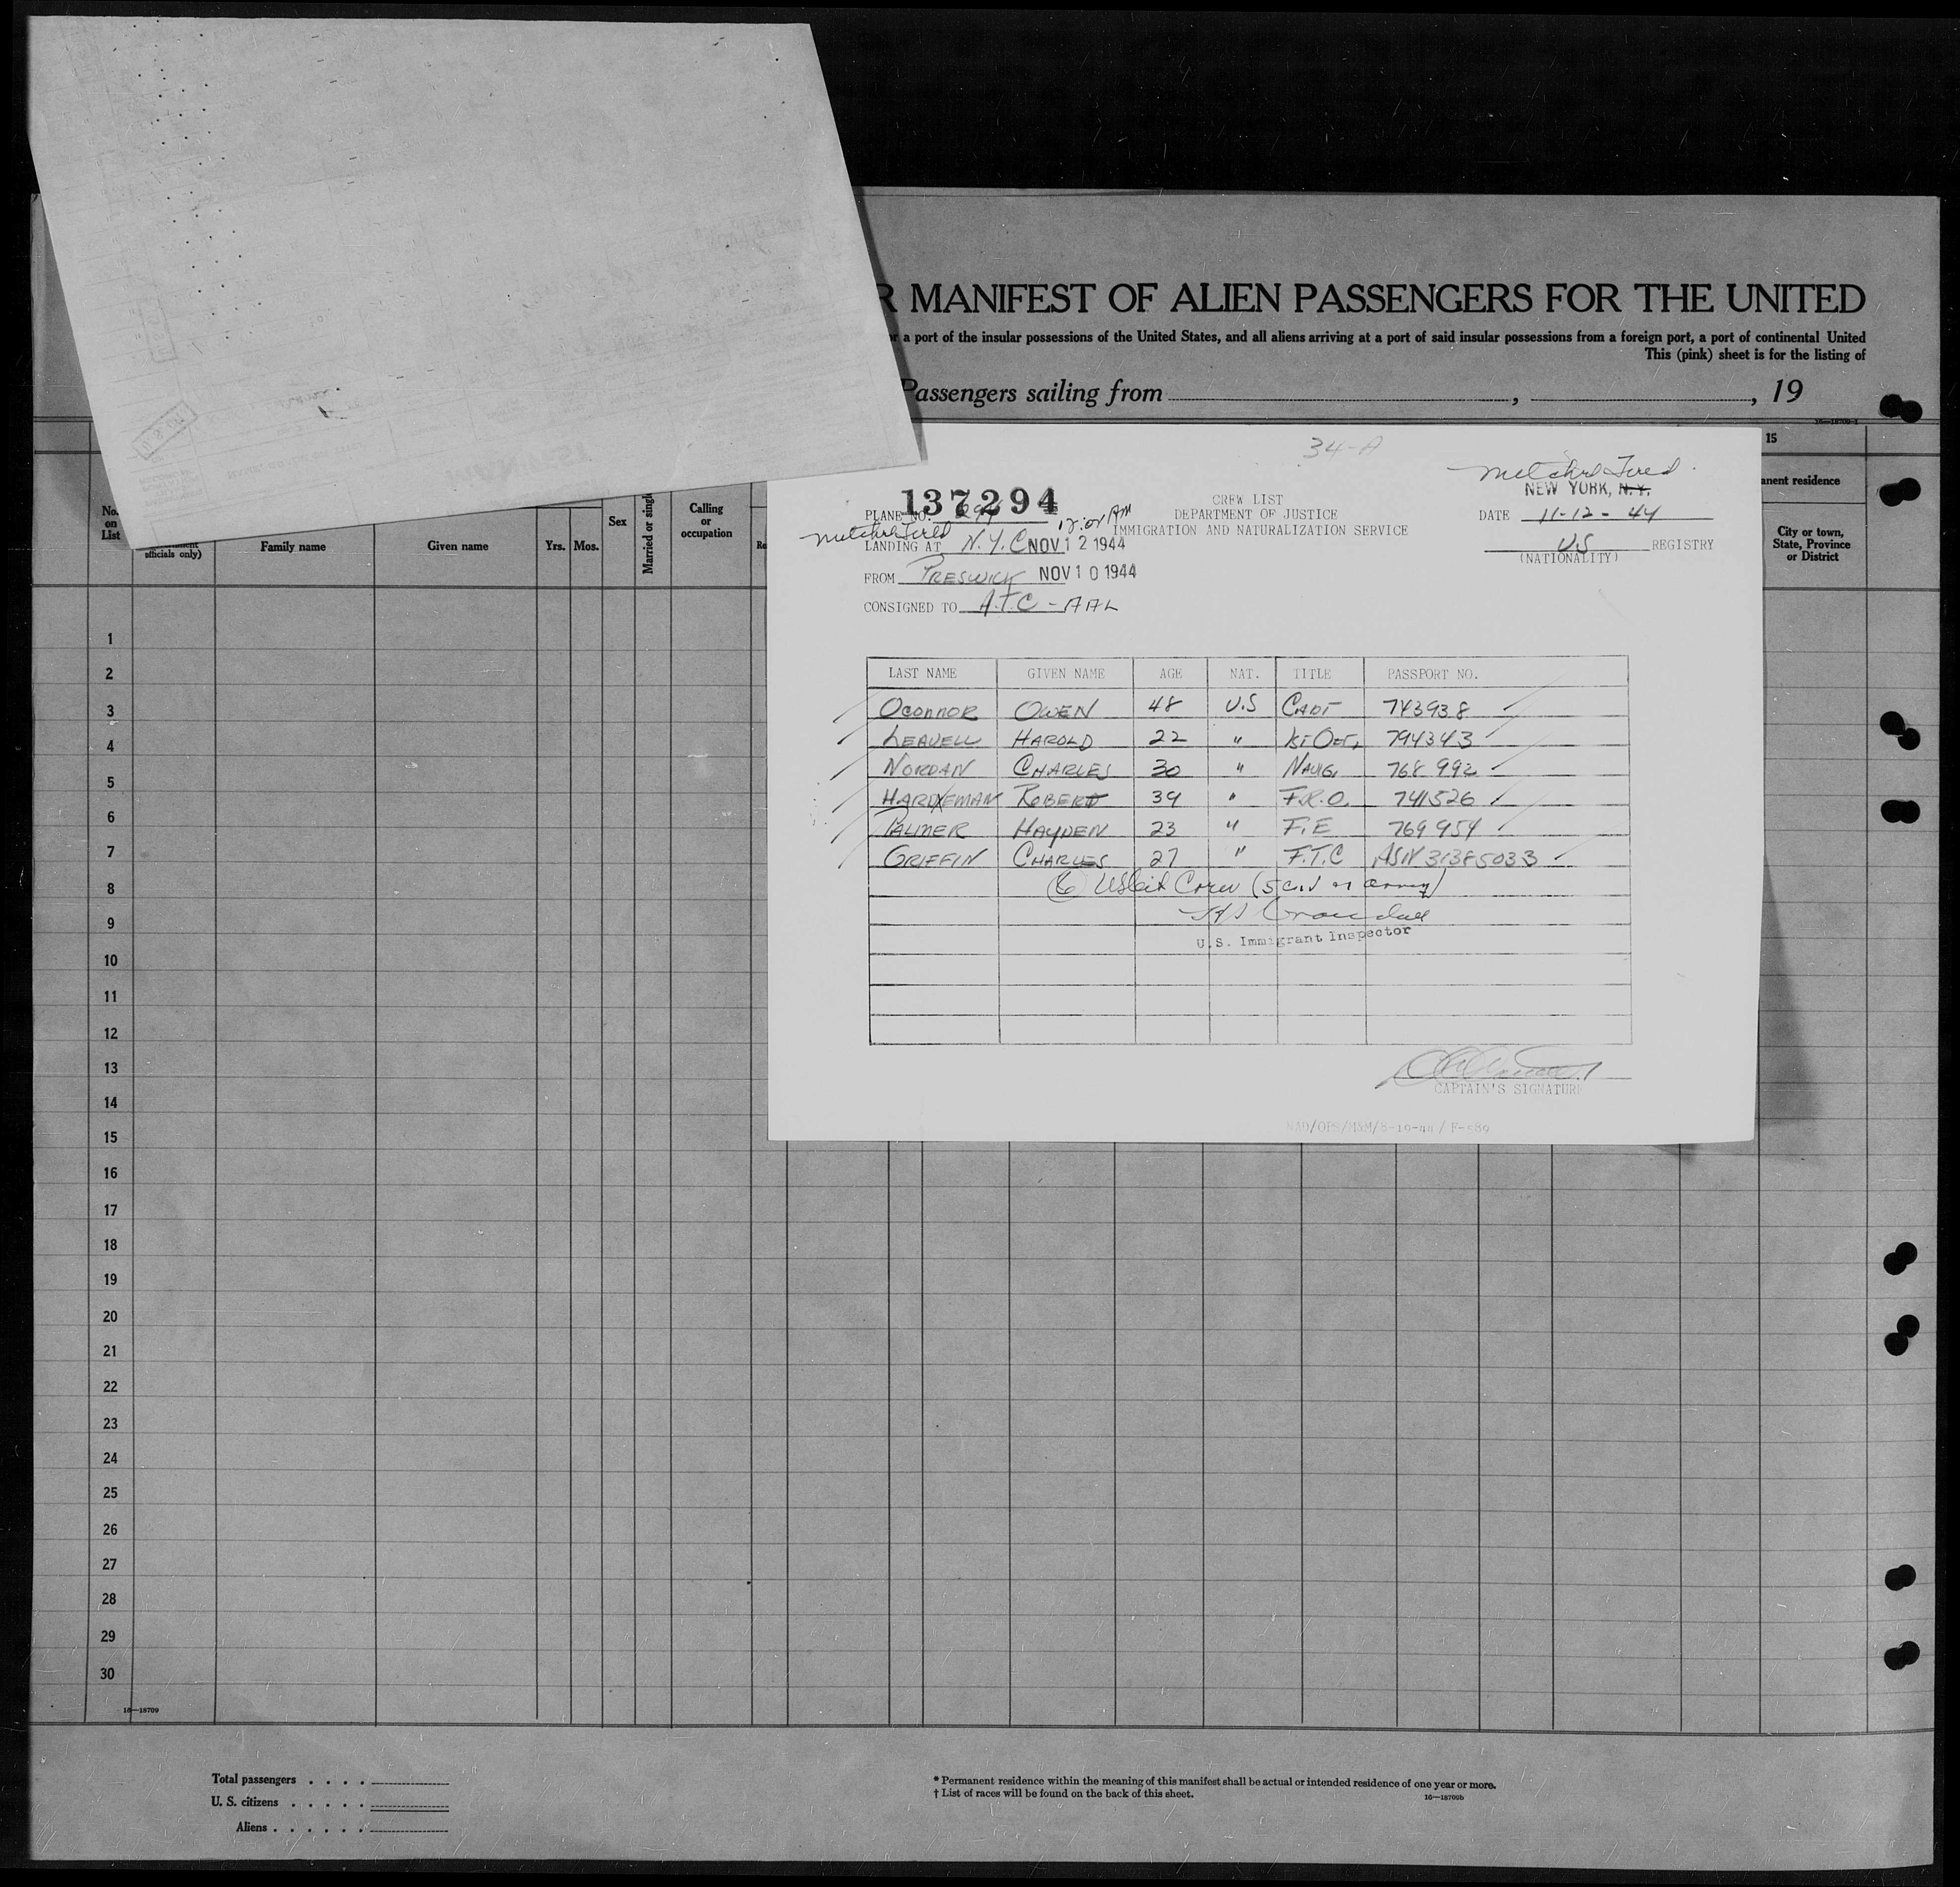 R MANIFEST OF ALIEN PASSENGERS FOR THE UNITED
or a port of the insular possessions of the United States, and all aliens arriving at a port of said insular possessions from a foreign port, a port of continental United
This (pink) sheet is for the listing of
Passengers sailing from , , 19
16—18709-1
15
anent residence
City or town, State, Province or District
No. on List
officials only)
Family name
Given name
Yrs.
Mos.
Sex
Married or single
Calling or occupation
34-A
Mitchel Field
NEW YORK, N.Y.
137294
CREW LIST
PLANE NO. 294 12:01 AM
DEPARTMENT OF JUSTICE
DATE 11-12-44
Mitchel Field
IMMIGRATION AND NATURALIZATION SERVICE
LANDING AT N.Y.C NOV 12 1944
U.S REGISTRY
(NATIONALITY)
FROM PRESWICK NOV 10 1944
CONSIGNED TO A.T.C - AAL
LAST NAME GIVEN NAME AGE NAT. TITLE PASSPORT NO.
OCONNOR OWEN 48 U.S CAPT 743938
LEAVELL HAROLD 22 " 1ST OFF. 794343
NORDAN CHARLES 30 " NAVIG. 768992
HARDXEMAN ROBERT 39 " F.R.O. 741526
PALMER HAYDEN 23 " F.E 769954
GRIFFIN CHARLES 27 " F.T.C ASN 31385033
(6) UScit Crew (5 civ 1 army)
U.S. Immigrant Inspector
CAPTAIN'S SIGNATURE
NAD/OPS/M&M/8-19-44 / F-589
1
2
3
4
5
6
7
8
9
10
11
12
13
14
15
16
17
18
19
20
21
22
23
24
25
26
27
28
29
30
16—18709
Total passengers . . . .
U. S. citizens . . . . .
Aliens . . . . . .
* Permanent residence within the meaning of this manifest shall be actual or intended residence of one year or more.
† List of races will be found on the back of this sheet.
16—18709b